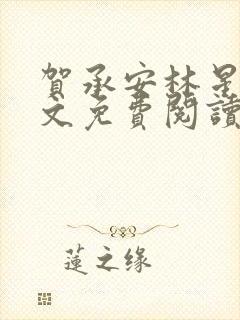 賀承安林是
文免費閱讀
蓮之缘